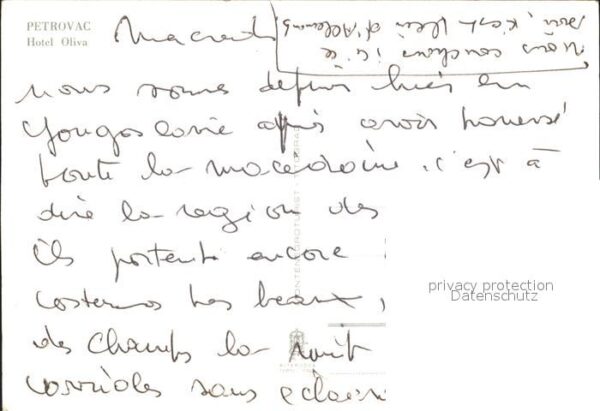 PETROVAC
Hotel Oliva
Nous couchons ici ce
soir, c'est plein d'Allemands
nous sommes depuis hier en
Yougoslavie après avoir traversé
toute la macedoine. c'est à
dire la region des
ils portent encore
costumes très beaux,
des champs la nuit
carrioles sans eclair
MONTENEGROTURIST
privacy protection
Datenschutz